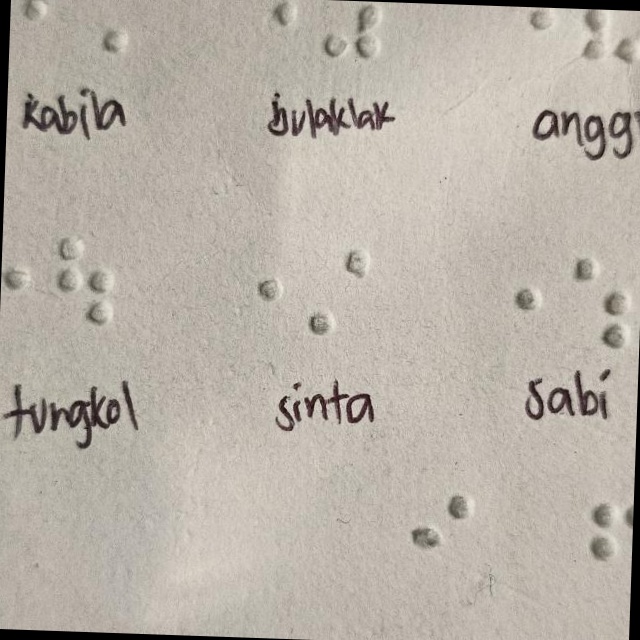 kabila bulaklak angg
tungkol sinta sabi